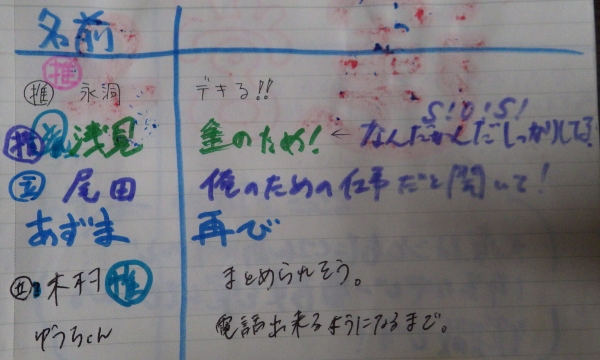 名前
推
推 永洞 デキる!!
S!O!S!
推 浅見 金のため! ← なんだかんだしっかりしてる
尾田 俺のための仕事だと聞いて!
あずま 再び
木村 推 まとめられそう。
ゆうちゃん 電話出来るようになるまで。